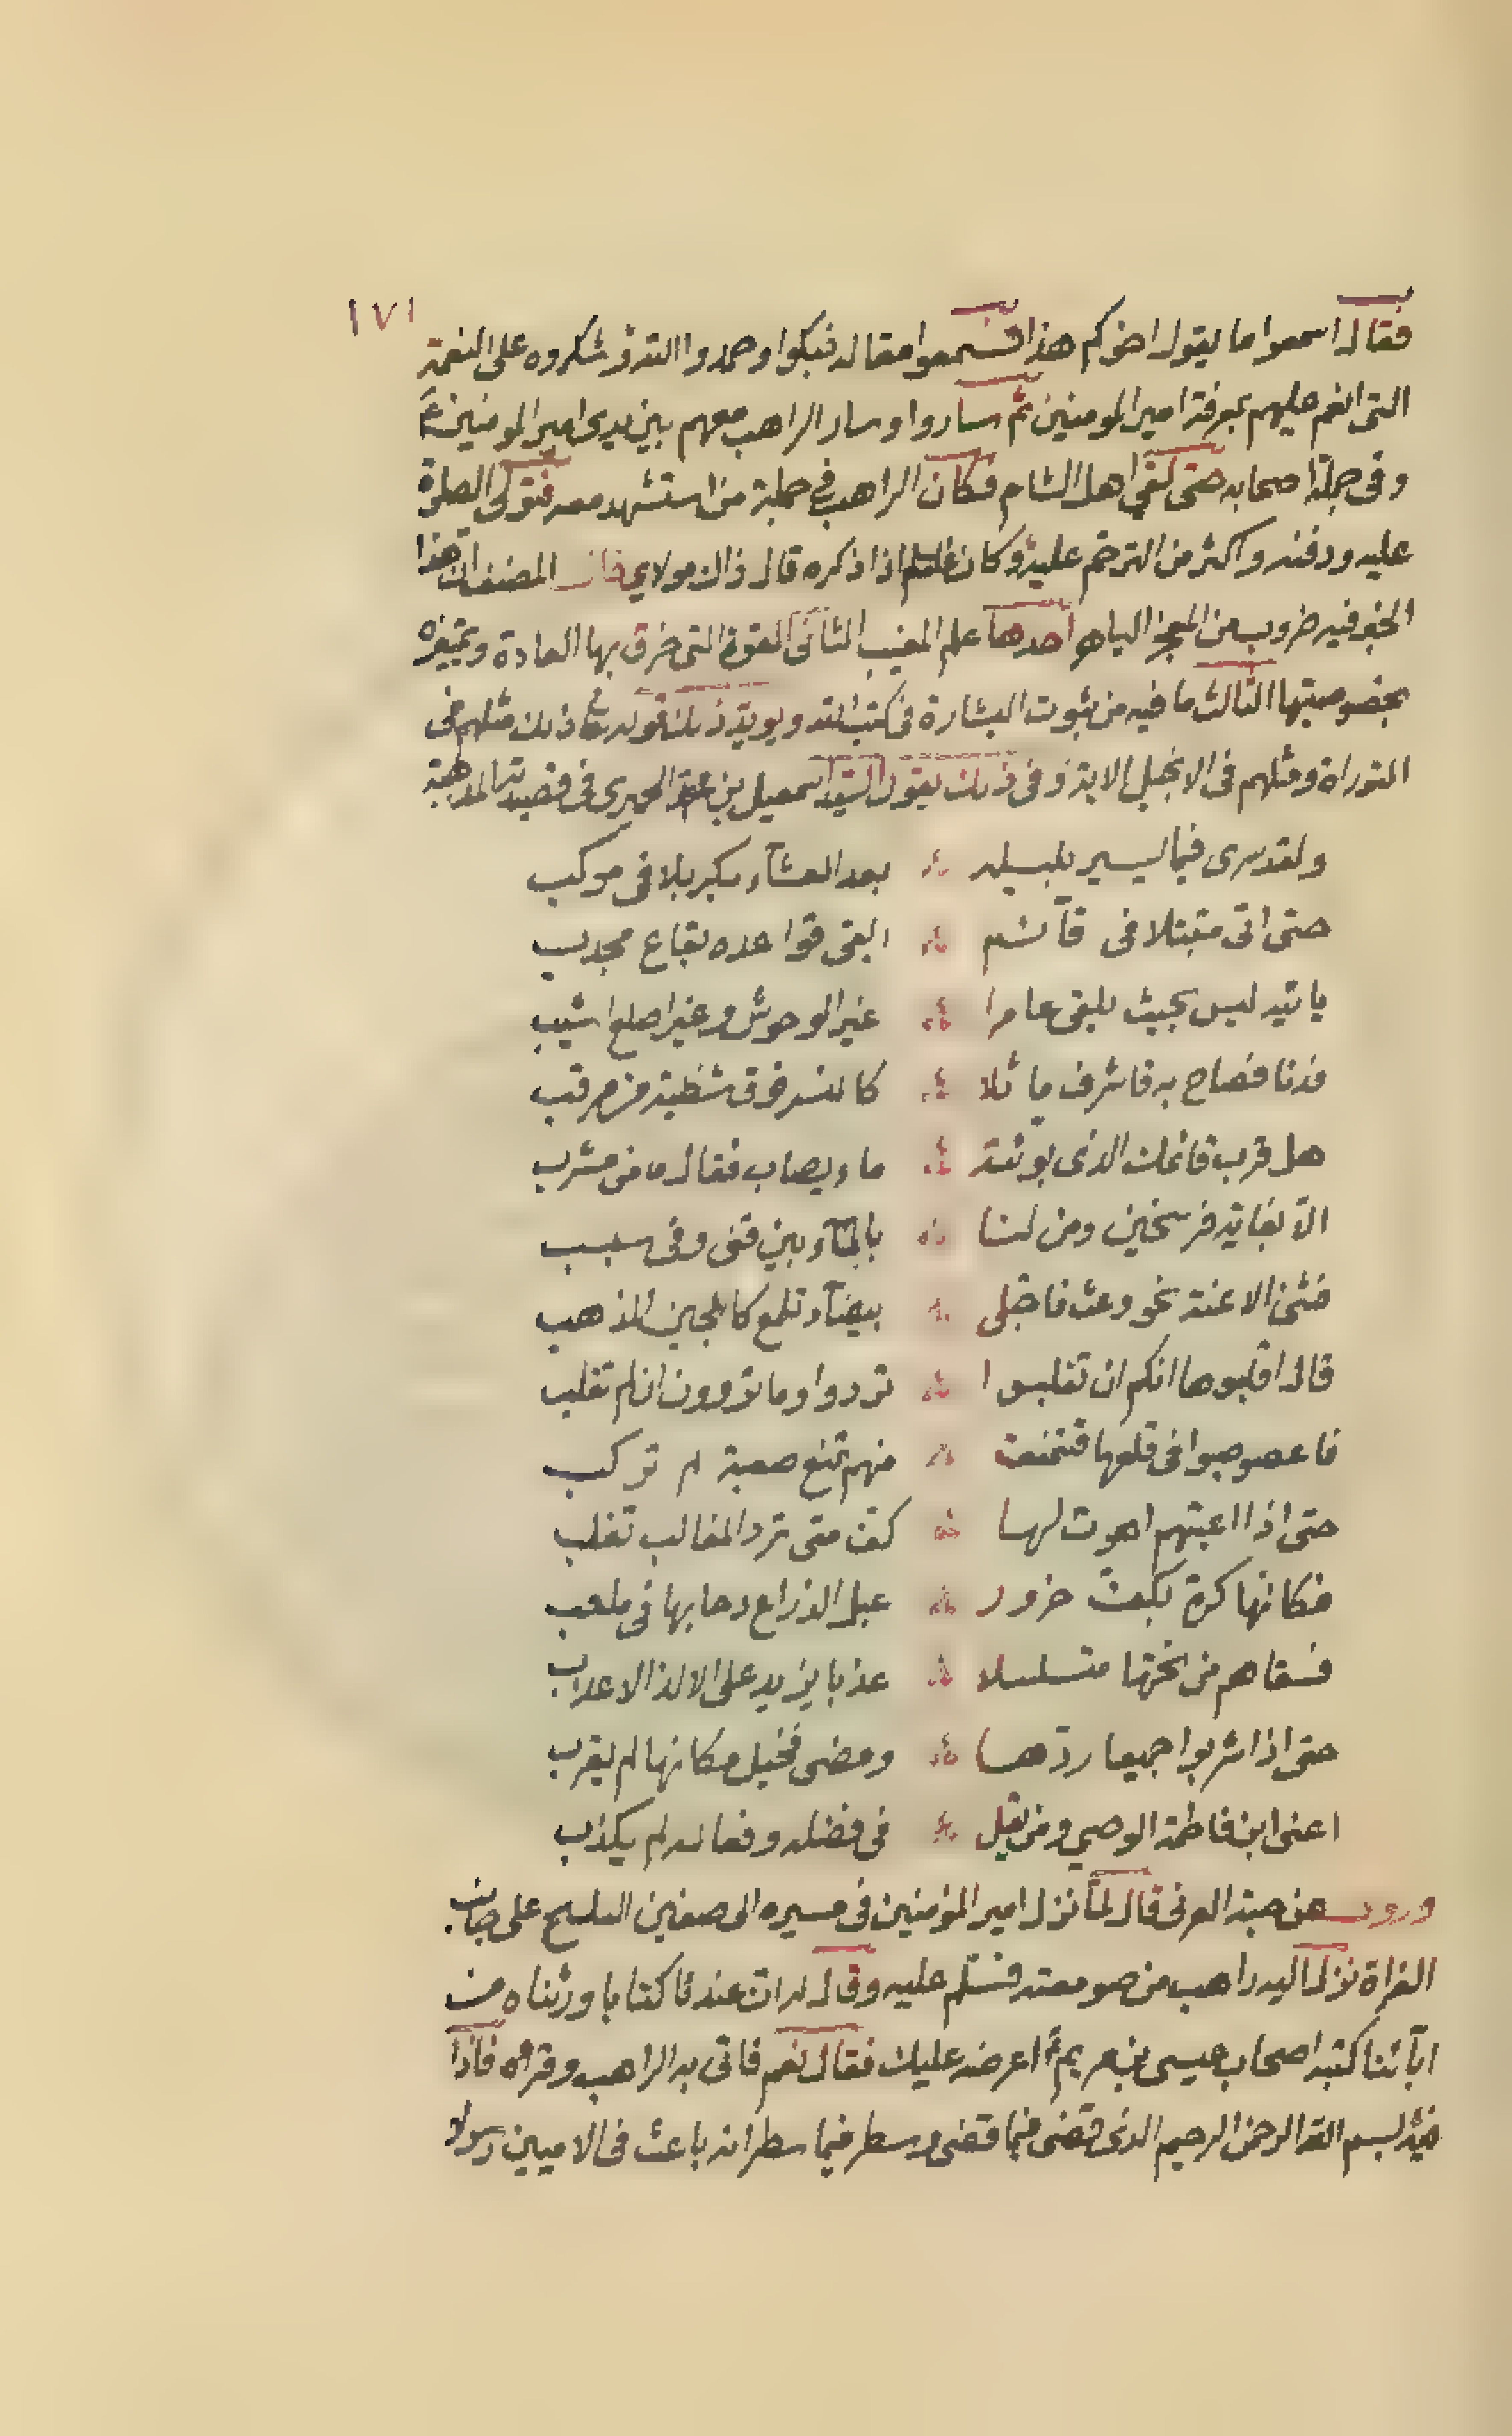 ١٧١
فقال اسمعوا ما يقول اخوكم هذا فسمعوا مقاله فبكوا وحمدوا الله وشكروه على النعمة
التى انعم عليهم بمعرفة امير المومنين ثم ساروا وسار الراهب معهم بين يدى امير المومنين ع
وفى جملة اصحابه حتى لقى اهل الشام فكان الراهب في جملة من استشهد معه فتولى الصلوة
عليه ودفنه واكثر من الترحم عليه وكان اذا ذكره قال ذاك مولاي قال المصنف ان هذا
الخبر فيه ضروب من المعجز الباهر احدها علم الغيب الثانى القوة التى خرق بها العادة وتميزه
بخصوصيتها الثالث ما فيه من ثبوت البشارة فى كتب الله ويويد ذلك قوله تع ذلك مثلهم فى
التوراة ومثلهم فى الانجيل الاية وفى ذلك يقول السيد اسمعيل بن محمد الحميرى فى قصيدته المذهبة
ولقد سرى فيما يسير بليله بعد العشآء بكربلا فى موكب
حتى اتى متبتلا فى قآئم القى قواعده بقاع مجدب
ياتيه ليس بحيث يلقى عامرا غير الوحوش وغير اصلع اشيب
فدنا فصاح به فاشرف ماثلا كالنسر فوق شظية من مرقب
هل قرب قائمك الذى بوئته ماء يصاب فقال ما من مشرب
الا بغاية فرسخين ومن لنا بالمآء بين نقى وقى سبسب
فثنى الاعنة نحو وعث فاجتلى بيضآء تلمع كاللجين المذهب
قال اقلبوها انكم ان تقلبوا تردوا وما تروون ان لم تقلب
فاعصوصبوا فى قلعها فتمنعت منهم تمنع صعبة لم تركب
حتى اذا اعيتهم اهوت لها كف متى ترد المغالب تغلب
فكانها كرة بكف حزور عبل الذراع دحا بها فى ملعب
فسقاهم من تحتها متسلسلا عذبا يزيد على الالذ الاعذب
حتى اذا شربوا جميعا ردّها ومضى فخيل مكانها لم يقرب
اعنى ابن فاطمة الوصي ومن يقل فى فضله وفعاله لم يكذب
وروى عن حبة العرنى قال لما نزل امير المؤمنين فى مسيره الى صفين البليخ على جانب
الفراة نزل اليه راهب من صومعته فسلم عليه وقال له ان عندنا كتابا ورثناه من
ابآئنا كتبه اصحاب عيسى بن مريم ع اعرضه عليك فقال نعم فاتى به الراهب وقراه فاذا
فيه بسم الله الرحمن الرحيم الذى قضى فيما قضى وسطر فيما سطر انه باعث فى الاميين رسولا